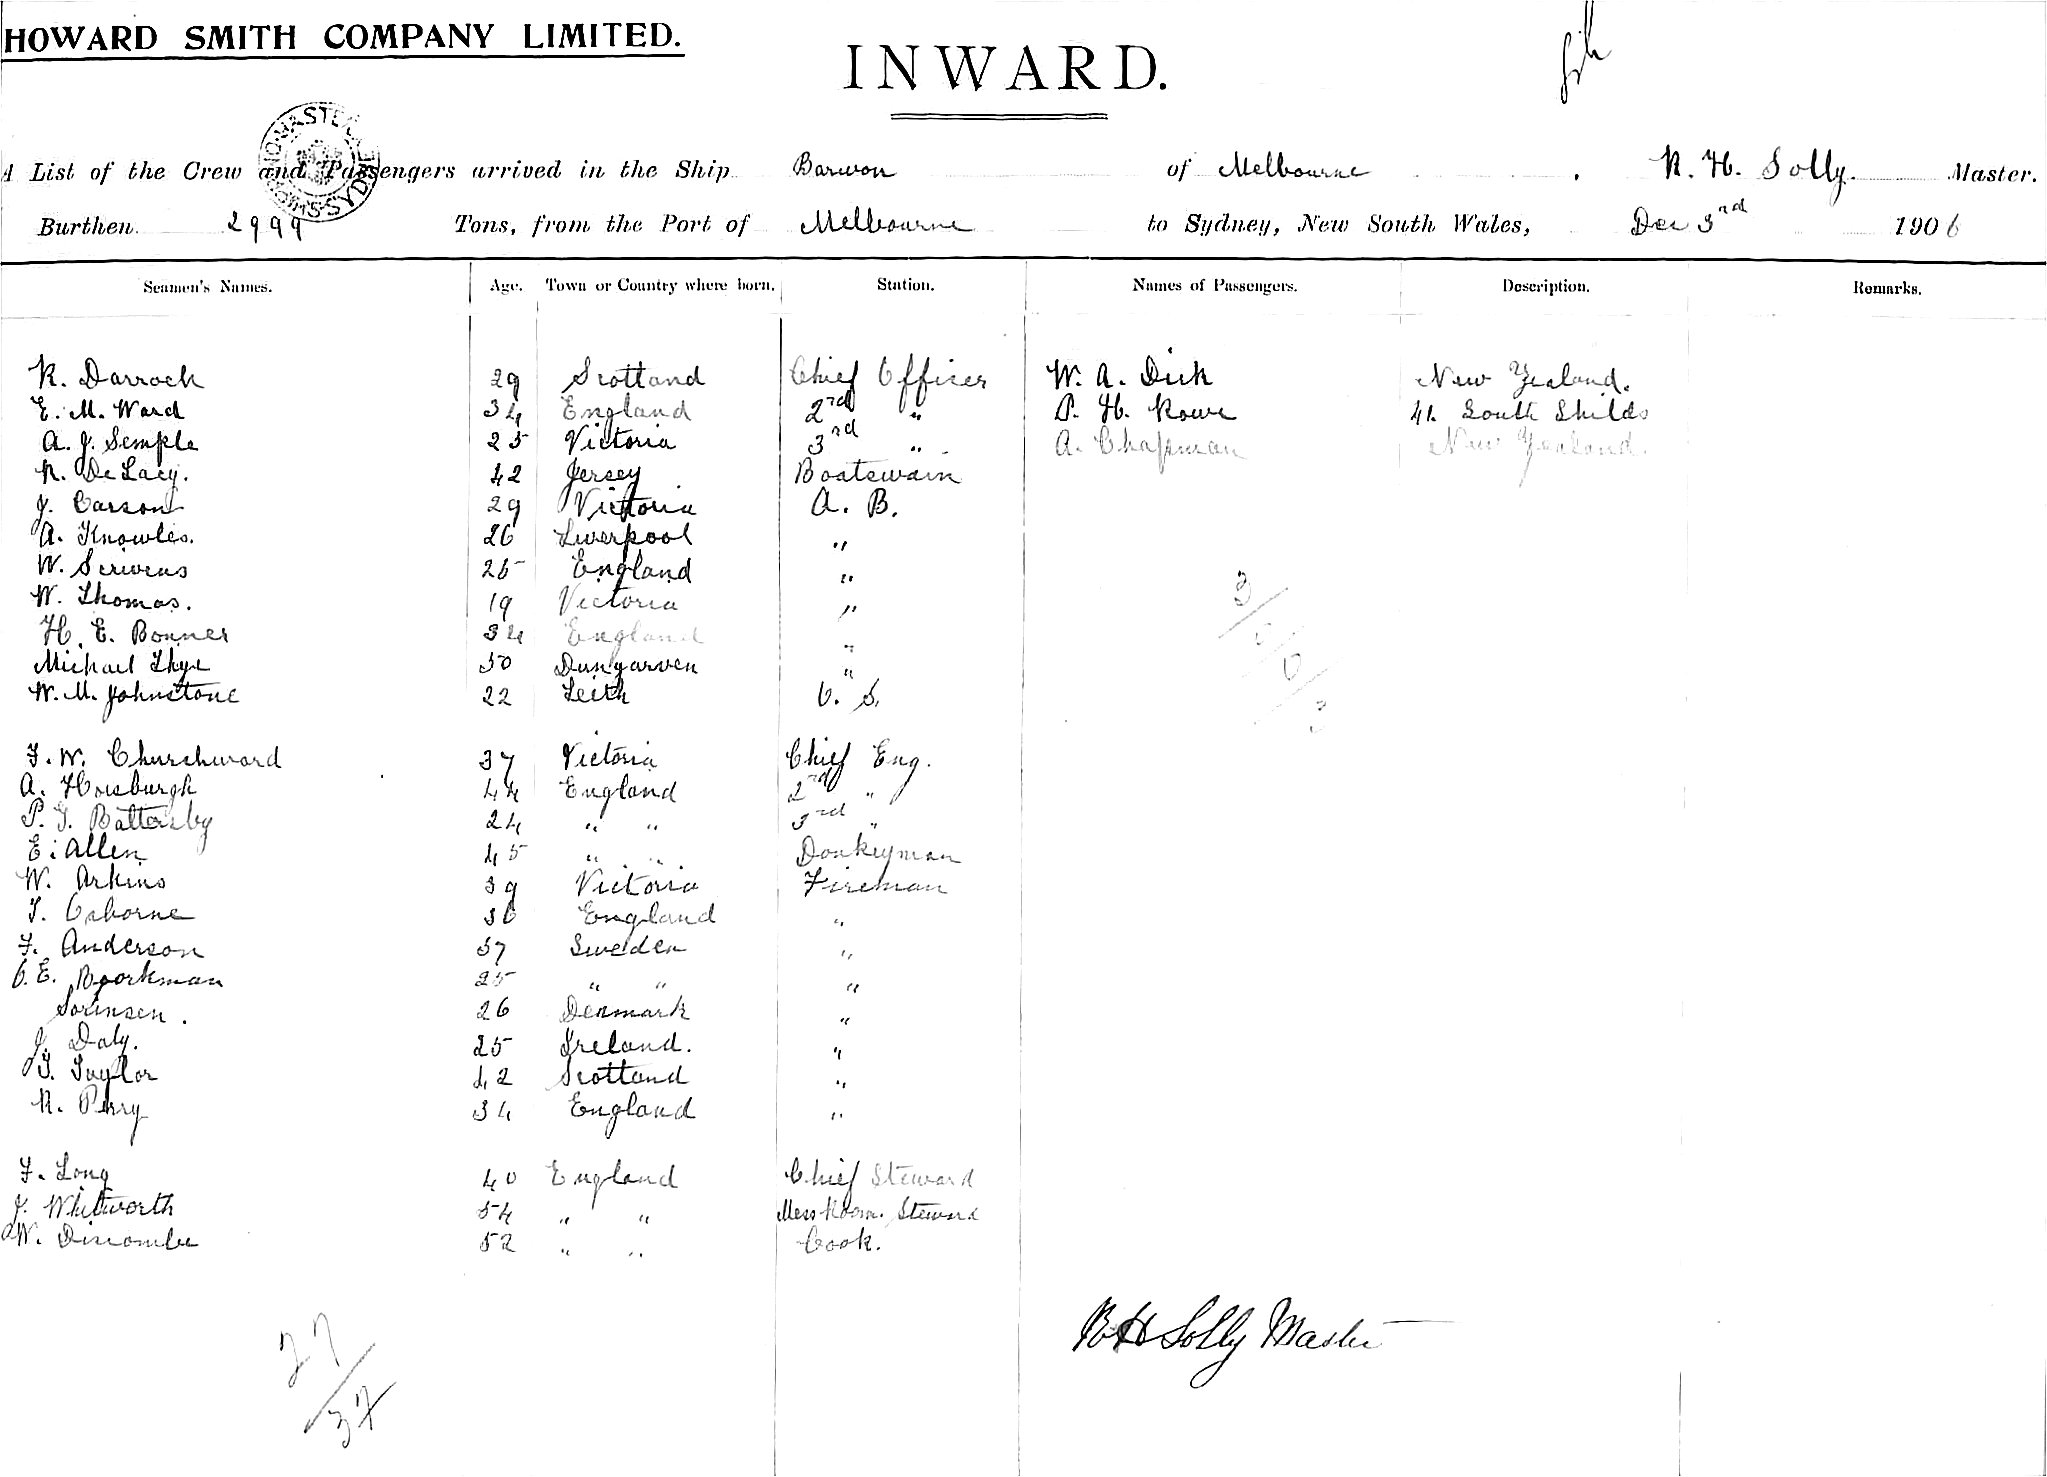 HOWARD SMITH COMPANY LIMITED.
INWARD.
SHIPPING MASTER SYDNEY
A List of the Crew and Passengers arrived in the Ship Barwon of Melbourne . R. H. Solly. Master.
Burthen 2999 Tons, from the Port of Melbourne to Sydney, New South Wales, Dec 3rd 1906
Seamen's Names. Age. Town or Country where born. Station. Names of Passengers. Description. Remarks.
R. Darroch 29 Scotland Chief Officer W. A. Dick New Zealand.
E. M. Ward 34 England 2nd " P. H. Rowe 41. South Shilds
A. J. Semple 25 Victoria 3rd " A. Chapman New Zealand.
R. De Lacy. 42 Jersey Boatswain
J. Carson 29 Victoria A. B.
A. Knowles. 26 Liverpool "
W. Scrivens 25 England "
W. Thomas. 19 Victoria "
H. E. Bonner 34 England "
Michael 50 Dungarven "
W. M. Johnstone 22 Leith O. S.
F. W. Churchward 37 Victoria Chief Eng.
A. Horsburgh 44 England 2nd "
P. G. Battersby 24 " " 3rd "
E. Allen 45 " " Donkeyman
W. Arkins 39 Victoria Fireman
T. Osborne 36 England "
F. Anderson 37 Sweden "
O. E. Bjorkman 25 " " "
Sorensen. 26 Denmark "
J. Daly. 25 Ireland. "
T. Taylor 42 Scotland "
R. Perry 34 England "
F. Long 40 England Chief Steward
J. Whitworth 54 " " Mess Room. Steward
W. Discombe 52 " " Cook.
R H Solly Master
27/37